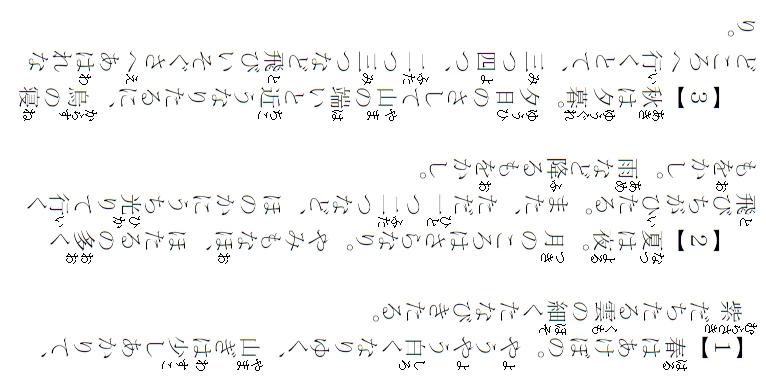 【1】春はあけぼの。やうやう白くなりゆく、山ぎは少しあかりて、
紫だちたる雲の細くたなびきたる。
【2】夏は夜。月のころはさらなり。やみもなほ、ほたるの多く
飛びちがひたる。また、ただ一つ二つなど、ほのかにうち光りて行く
もをかし。雨など降るもをかし。
【3】秋は夕暮。夕日のさして山の端いと近うなりたるに、烏の寝
どころへ行くとて、三つ四つ、二つ三つなど飛びいそぐさへあはれな
り。